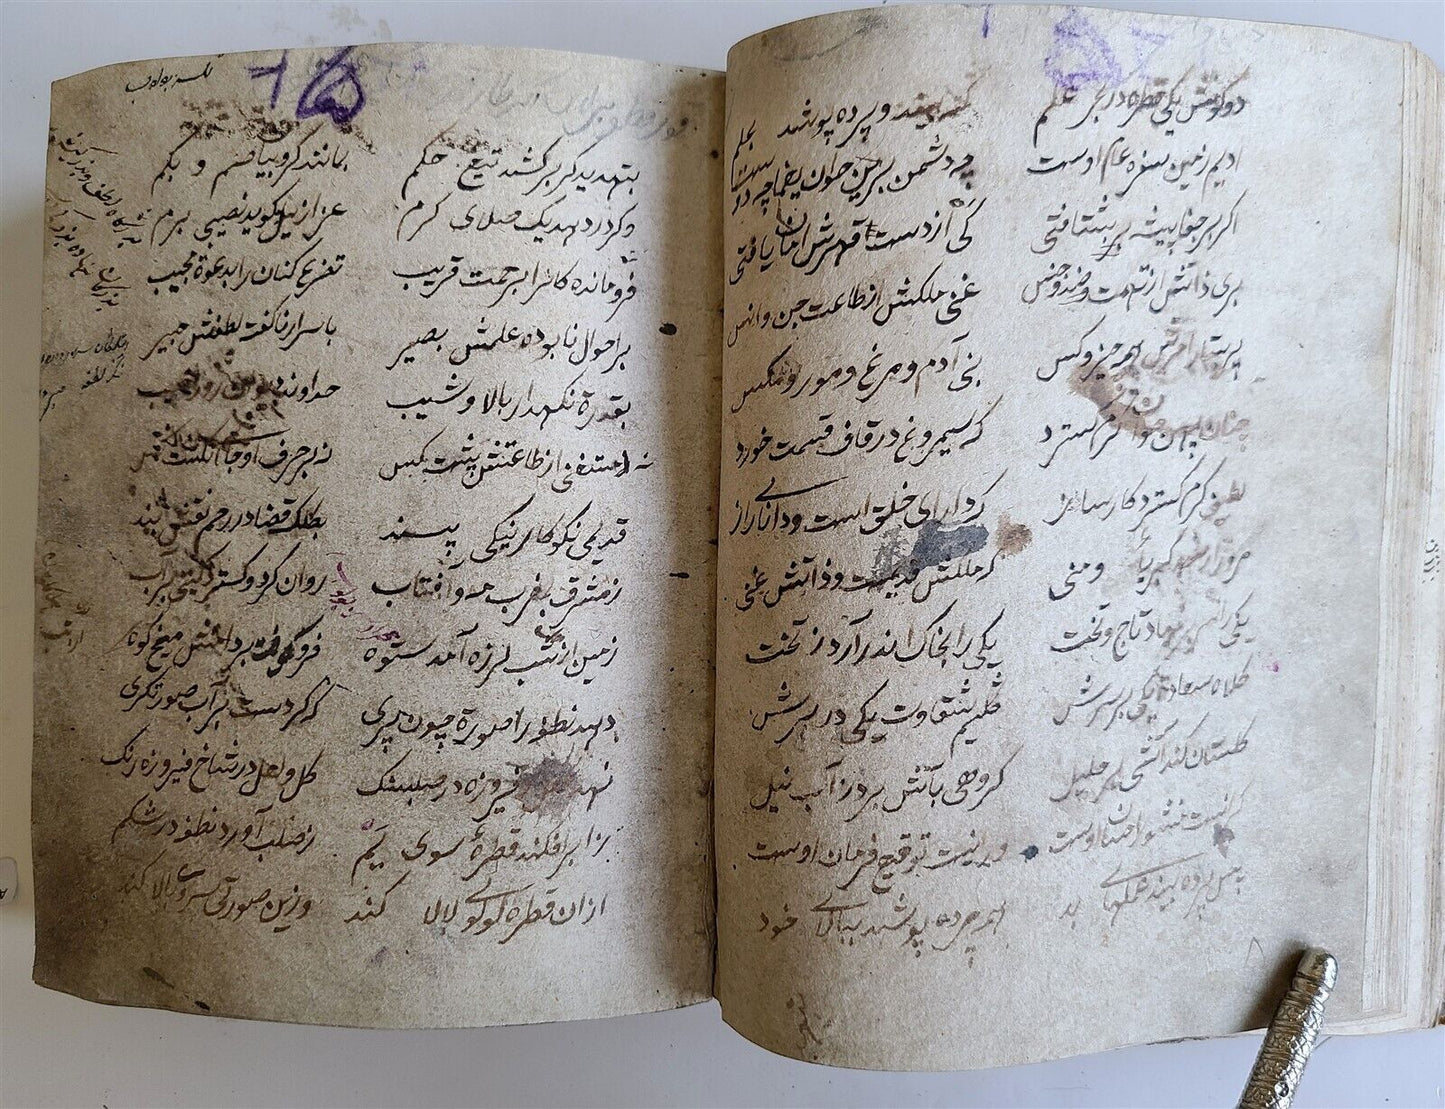 دو کونش یکی قطره در بحر علم کنه بیند و پرده پوشد بحلم
ادیم زمین سفره عام اوست چه دشمن برین خوان یغما چه دوست
اکر بر جفا پیشه بشتافتی کی از دست قهرش امان یافتی
بری ذاتش از تهمت ضد و جنس غنی ملکش از طاعت جن و انس
پرستار امرش همه چیز و کس بنی آدم و مرغ و مور و مکس
چنان پهن خوان کرم کسترد که سیمرغ در قاف قسمت خورد
لطیف کرم کستر کارساز که دارای خلق است و دانای راز
مر او را رسد کبریا و منی که ملکش قدیمست و ذاتش غنی
یکی را بسر بر نهد تاج و تخت یکی را بخاک اندر آرد ز تخت
کلاه سعادت یکی بر سرش کلیم شقاوت یکی در برش
کلستان کند آتشی بر خلیل کروهی بآتش برد ز آب نیل
کر آنست منشور احسان اوست ور اینست توقیع فرمان اوست
پس پرده بیند عملهای بد هم او پرده پوشد ببالای خود
بتهدید کر برکشد تیغ حکم بمانند کروبیان صم و بکم
وکر در دهد یک صلای کرم عزازیل کوید نصیبی برم
فروماندکانرا برحمت قریب تضرع کنان را بدعوة مجیب
بر احوال نابوده علمش بصیر باسرار ناکفته لطفش خبیر
بقدرة نکهدار بالا و شیب خداوند دیوان روز حسیب
نه مستغنی از طاعتش پشت کس نه بر حرف او جای انکشت کس
قدیمی نکوکار نیکی پسند بکلک قضا در رحم نقش بند
ز مشرق بمغرب مه و آفتاب روان کرد و کسترد کیتی بر آب
زمین از تب لرزه آمد ستوه فرو کوفت بر دامنش میخ کوه
دهد نطفه را صورة چون پری که کردست بر آب صورتکری
نهد لعل و فیروزه در صلب سنک کل و لعل در شاخ فیروزه رنک
ز ابر افکند قطرهٔ سوی یم ز صلب آورد نطفه در شکم
از ان قطره لولوی لالا کند وزین صورتی سرو بالا کند